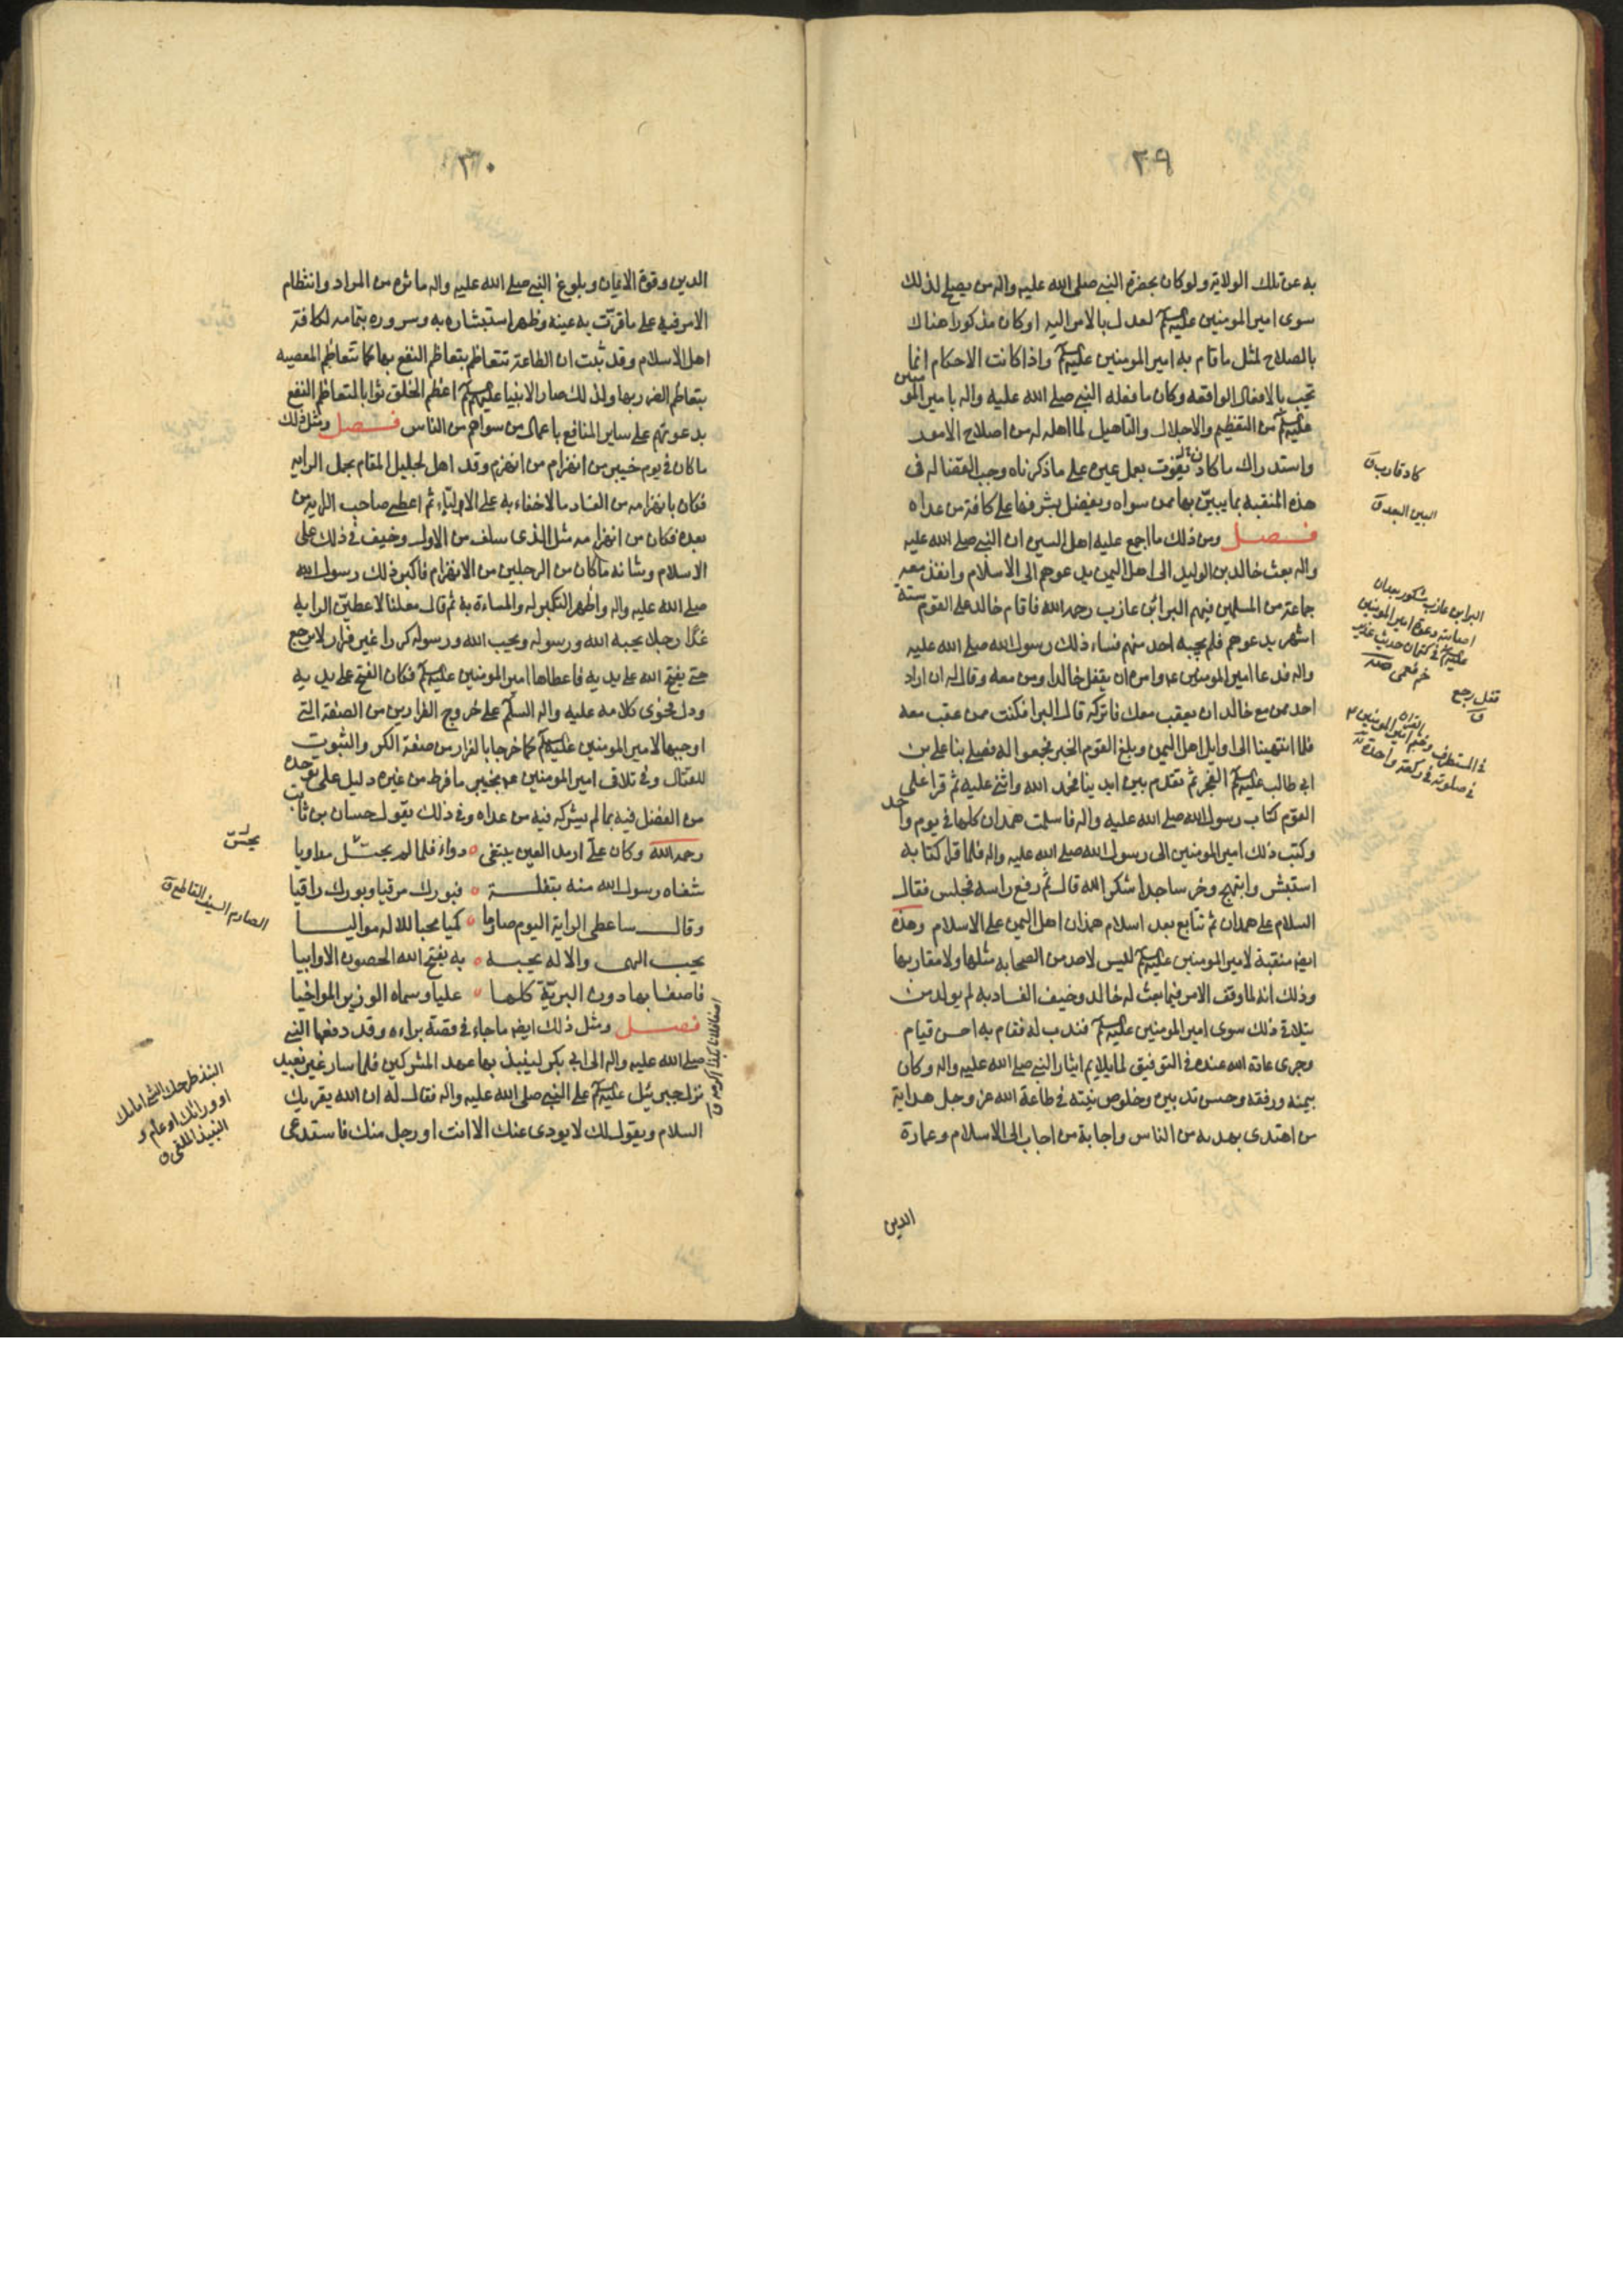 ٢٩
به عن تلك الولاية ولو كان بحضرة النبي صلى الله عليه واله من يصلح لذلك
سوى امير المومنين عليه السلم لعدل بالامر اليه او كان مذكورا هناك
بالصلاح لمثل ما قام به امير المومنين عليه السلم واذا كانت الاحكام انما
تجب بالافعال الواقعه وكان ما فعله النبي صلى الله عليه واله بامير المومنين
عليه السلم من التعظيم والاجلال والتاهيل لما اهله له من اصلاح الامور
واستدراك ما كاد يفوت بعمل غيره على ما ذكرناه وجب القضا له فى
هذه المنقبه بما يبين بها ممن سواه ويفضل بشرفها على كافة من عداه
فصل ومن ذلك ما اجمع عليه اهل السير ان النبي صلى الله عليه
واله بعث خالد بن الوليد الى اهل اليمن يدعوهم الى الاسلام وانفذ معه
جماعة من المسلمين فيهم البرا بن عازب رحمه الله فاقام خالد على القوم ستة
اشهر يدعوهم فلم يجبه احد منهم فساء ذلك رسول الله صلى الله عليه
واله فدعا امير المومنين ع وامره ان يقفل خالدا ومن معه وقال له ان اراد
احد ممن مع خالد ان يعقب معك فاتركه قال البرا فكنت ممن عقب معه
فلما انتهينا الى اوايل اهل اليمن وبلغ القوم الخبر تجمعوا له فصلى بنا على بن
ابى طالب عليه السلم الفجر ثم تقدم بين ايدينا فحمد الله واثنى عليه ثم قرا على
القوم كتاب رسول الله صلى الله عليه واله فاسلمت همدان كلها فى يوم واحد
وكتب ذلك امير المومنين الى رسول الله صلى الله عليه واله فلما قرا كتابه
استبشر وابتهج وخر ساجدا شكرا لله قال ثم رفع راسه فجلس فقال
السلام على همدان ثم تتابع بعد اسلام همدان اهل اليمن على الاسلام وهذه
ايضا منقبة لامير المومنين عليه السلم ليس لاحد من الصحابه مثلها ولا مقاربها
وذلك انه لما وقف الامر فيما بعث له خالد وخيف الفساد به لم يوجد من
يتلافى ذلك سوى امير المومنين عليه السلم فندب له فقام به احسن قيام
وجرى عادة الله عنده فى التوفيق لما يلايم ايثار النبي صلى الله عليه واله وكان
بيمنه ورفقه وحسن تدبيره وخلوص نيته فى طاعة الله عز وجل هداية
من اهتدى بهديه من الناس واجابة من اجاب الى الاسلام وعمارة
الدين
كاد قارب ق
البين البعد ق
البرا بن عازب مشكور بعد ان
اصابته دعوة امير المومنين
عليه السلم فى كتمان حديث غدير
خم فعمى صه
قفل رجع
ق
٣٠
الدين وقوة الايمان وبلوغ النبي صلى الله عليه واله ما اثره من المراد وانتظام
الامر فيه على ما قرت به عينه وظهر استبشاره به وسروره بتمامه لكافة
اهل الاسلام وقد ثبت ان الطاعة تتعاظم بتعاظم النفع بها كما تتعاظم المعصيه
بتعاظم الضر بها ولذلك صار الانبيا عليهم السلم اعظم الخلق ثوابا لتعاظم النفع
بدعوتهم على ساير المنافع باعمال من سواهم من الناس فصل ومثل ذلك
ما كان فى يوم خيبر من انهزام من انهزم وقد اهل لجليل المقام بحمل الرايه
فكان بانهزامه من الفساد ما لا خفاء به على الالباء ثم اعطى صاحب الراية من
بعده فكان من انهزامه مثل الذى سلف من الاول وخيف فى ذلك على
الاسلام وشانه ما كان من الرجلين من الانهزام فاكبر ذلك رسول الله
صلى الله عليه واله واظهر النكير له والمساءة به ثم قال معلنا لاعطين الرايه
غدا رجلا يحبه الله ورسوله ويحب الله ورسوله كرارا غير فرار لا يرجع
حتى يفتح الله على يديه فاعطاها امير المومنين عليه السلم فكان الفتح على يديه
ودل فحوى كلامه عليه واله السلم على خروج الفرارين من الصفة التى
اوجبها لامير المومنين عليه السلم كما خرجا بالفرار من صفة الكر والثبوت
للقتال وفى تلافى امير المومنين ع بخيبر ما فرط من غيره دليل على توحده
من الفضل فيه بما لم يشركه فيه من عداه وفى ذلك يقول حسان بن ثابت
رحمه الله وكان على ارمد العين يبتغى ٥ دواء فلما لم يحس مداويا
شفاه رسول الله منه بتفلة ٥ فبورك مرقيا وبورك راقيا
وقال ساعطى الراية اليوم صارما ٥ كميا محبا للاله مواليا
يحب الهى والاله يحبه ٥ به يفتح الله الحصون الاوابيا
فاصفى بها دون البرية كلها ٥ عليا وسماه الوزير المواخيا
فصل ومثل ذلك ايضا ما جاء فى قصة براءه وقد دفعها النبي
صلى الله عليه واله الى ابى بكر لينبذ بها عهد المشركين فلما سار غير بعيد
نزل جبرئيل عليه السلم على النبي صلى الله عليه واله فقال له ان الله يقريك
السلام ويقول لك لا يودى عنك الا انت او رجل منك فاستدعى
يحس
الصارم السيف القاطع ق
النبذ طرحك الشئ امامك
او وراءك او عام و
النبيذ الملقى ق